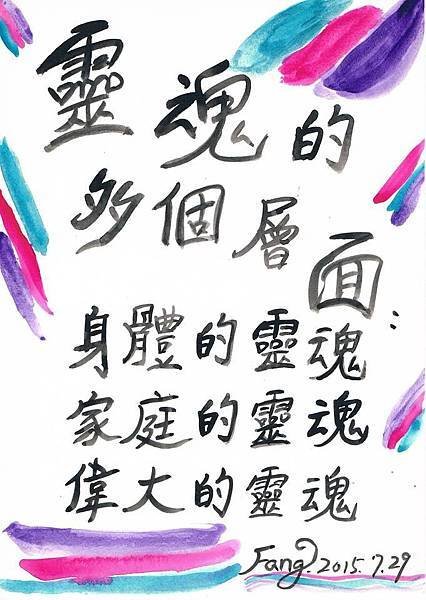 靈魂的
多個層面：
身體的靈魂
家庭的靈魂
偉大的靈魂
Fang. 2015.7.29